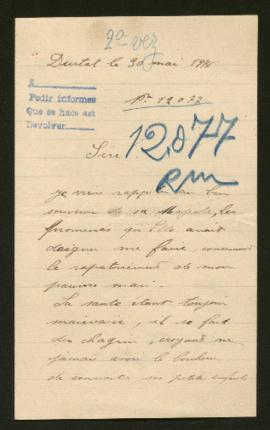 2a vez
Durtal le 30 mai 191
A
Pedir informes
Que se hace así
Devolver
No 12077
12077
Sire
Je viens rappeler au bon
souvenir de sa Majesté, les
promesses qu'Elle avait
daigné me faire, concernant
le rapatriement de mon
pauvre mari.
Sa santé étant toujours
mauvaise, il se fait
du chagrin, croyant ne
jamais avoir le bonheur
de connaître ses petits enfants